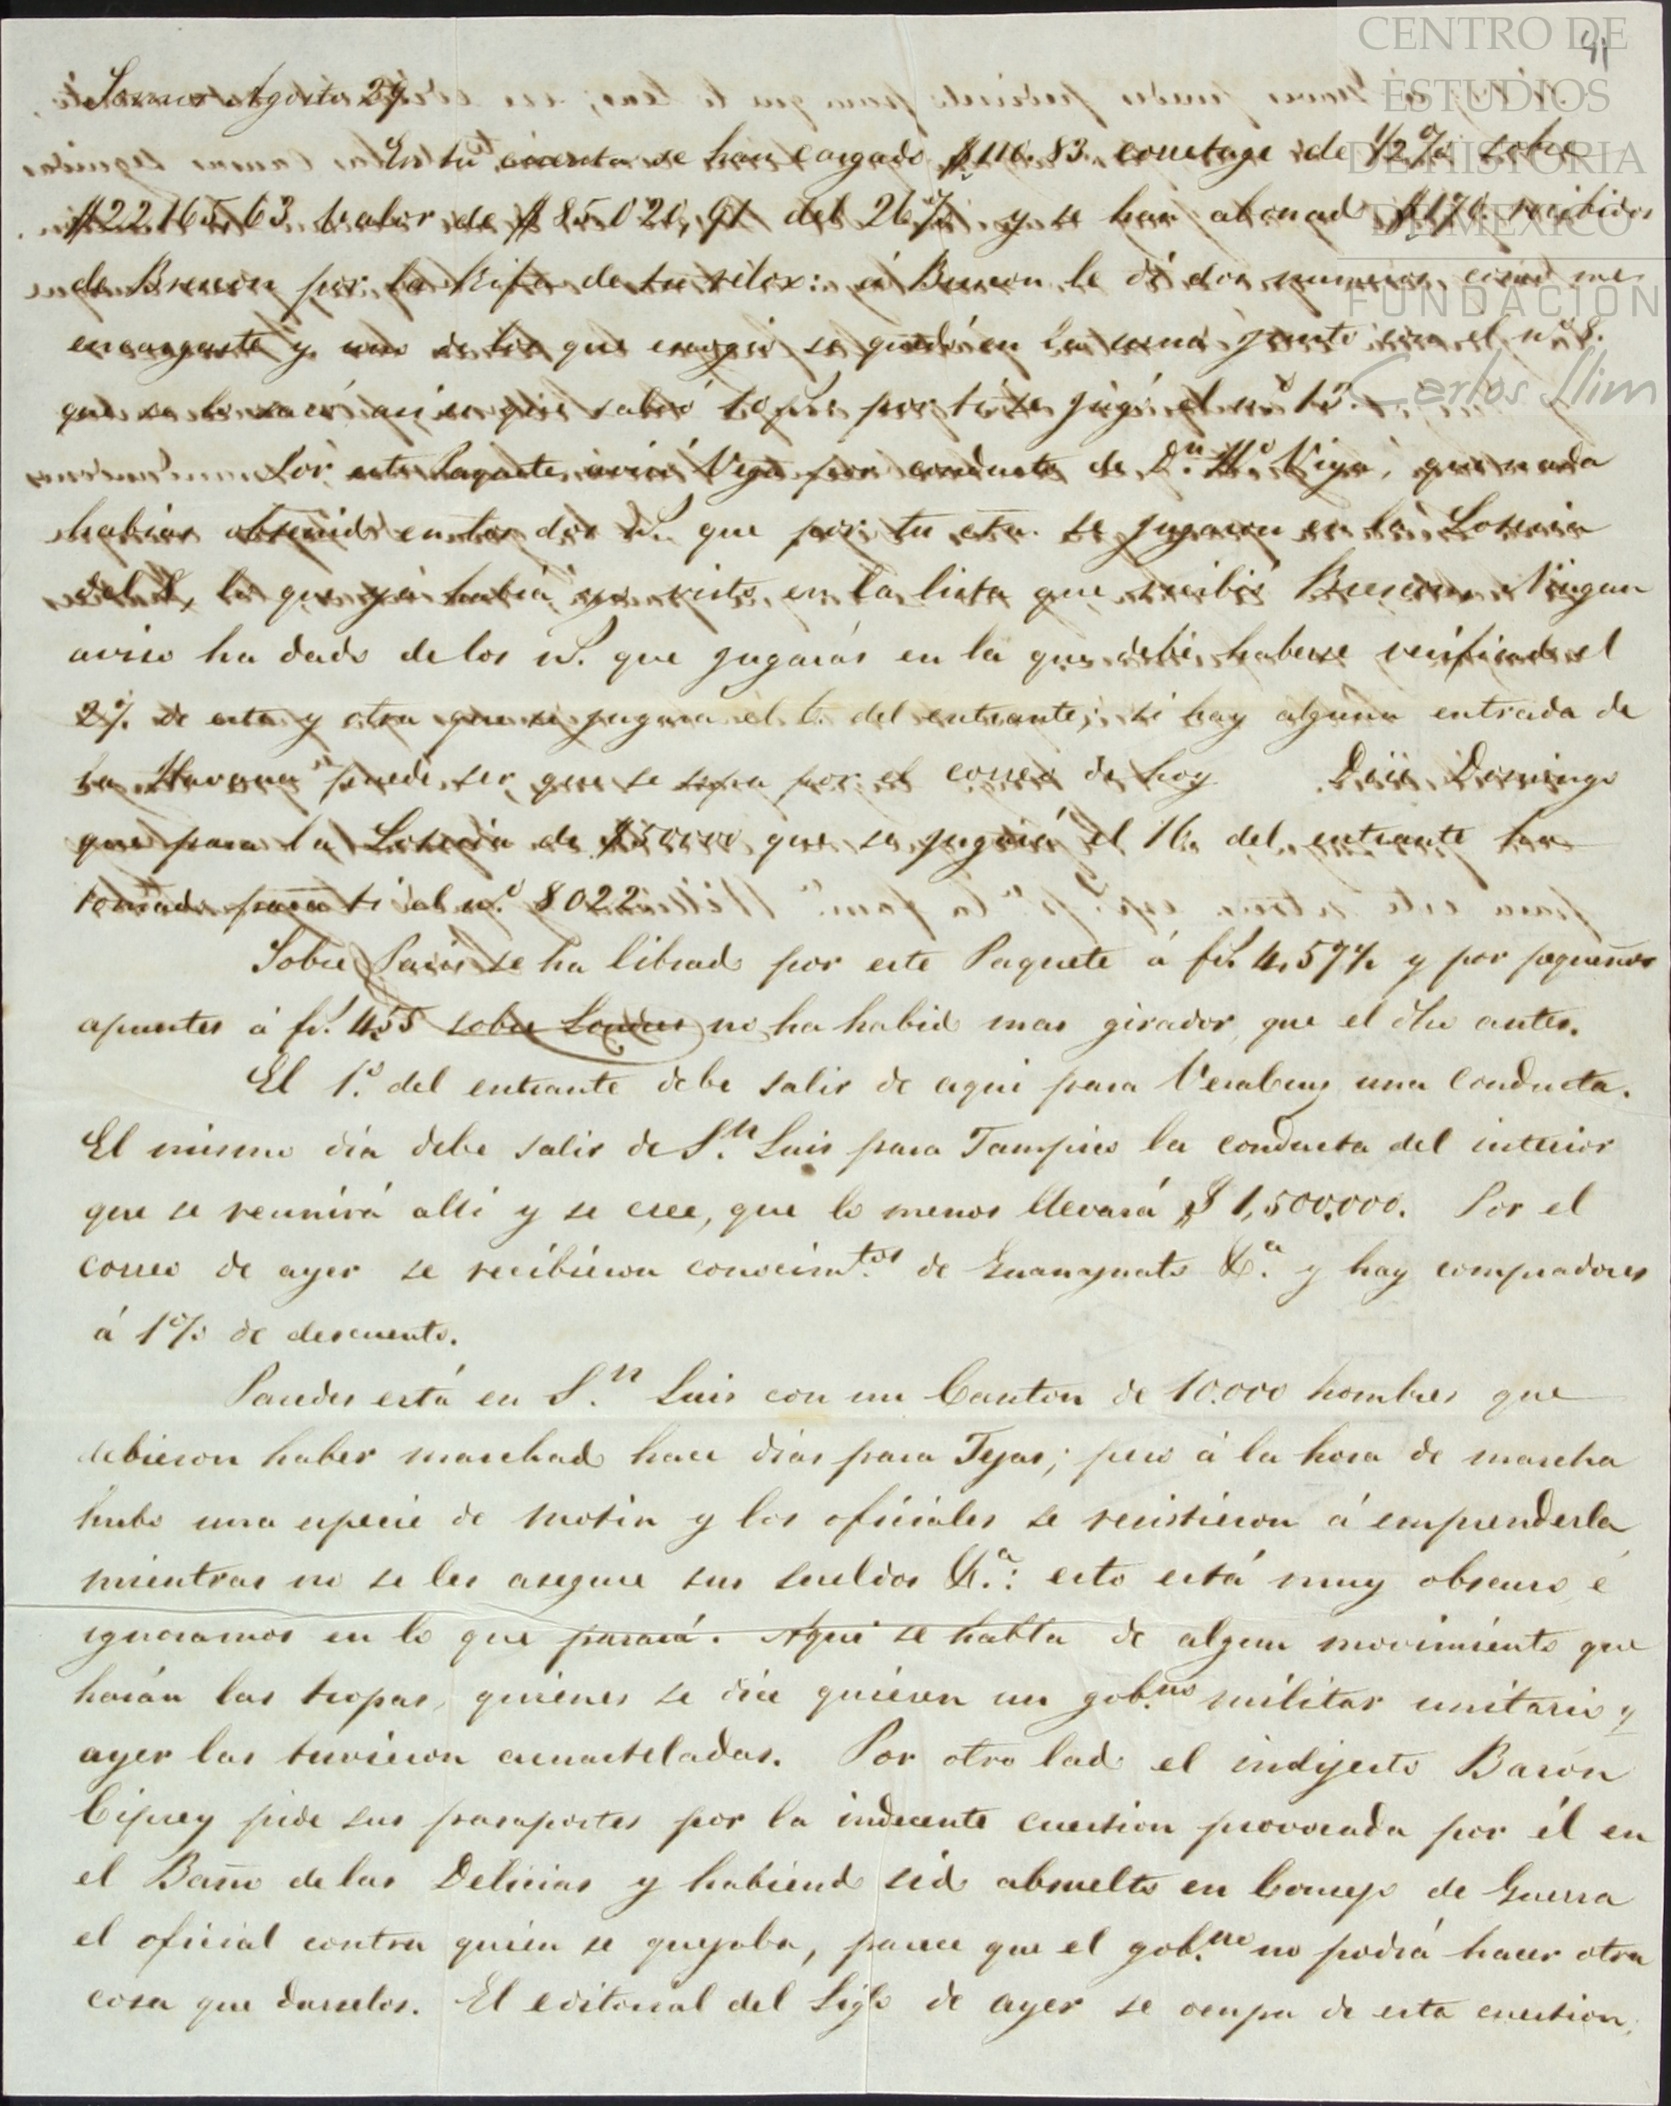 91
Somos Agosto 29
En tu cuenta se han cargado $110.83 corretage de 1/2 % sobre
$22165,63 valor de $85.020,91 del 26 % y se han abonado $170 recibidos
de Brencon por la Rifa de tu relox: á Brencon le dí dos numeros como me
encargaste y uno de los que escogió se quedó en la suma junto con el nº 8.
que se lo sacó así es que por ti se jugó el nº 15.
Por este Paquete avisó Vega por conducto de Dn. Viya, que nada
habias obtenido en los dos Ns. que por tu cta. se jugaron en la Loteria
del 8, lo que ya habiá yo visto en la lista que recibió Brencon. Ningun
aviso ha dado de los Ns. que jugarás en la que debe haberse verificado el
de este y otra que se jugara el 6. del entrante; si hay alguna entrada de
la Havana puede ser que se sepa por el correo de hoy Dice Domingo
que para la Loteria de $50000 que se jugará el 16. del entrante ha
tomado para ti el nº 8022
Sobre Paris se ha librado por este Paquete á fs. 4,57½ y por pequeños
apuntes á fs. 4.55 sobre Londres no ha habido mas girador, que el dho antes.
El 1º. del entrante debe salir de aqui para Verabruz una Conducta.
El mismo día debe salir de Sn. Luis para Tampico la conducta del interior
que se reunirá allí y se cree, que lo menos llevará $1,500.000. Por el
correo de ayer se recibieron conocimtos. de Guanajuato &a. y hay compradores
á 1 % de descuento.
Paredes está en Sn. Luis con un Canton de 10.000 hombres que
debieron haber marchado hace días para Tejas; pero á la hora de marcha
hubo una especie de motin y los oficiales se resistieron á emprenderla
mientras no se les asegure sus sueldos &a.: esto está muy obscuro, é
ignoramos en lo que parará. Aqui se habla de algun movimiento que
harán las tropas, quienes se dice quieren un gobno. militar unitario y
ayer las tuvieron acuarteladas. Por otro lado el indijesto Barón
Ciprey pide sus pasaportes por la indecente cuestion provocada por él en
el Baño de las Delicias y habiendo sido absuelto en Consejo de Guerra
el oficial contra quien se quejaba, parece que el gobno. no podrá hacer otra
cosa que darselos. El editorial del Siglo de ayer se ocupa de esta cuestion,
CENTRO DE
ESTUDIOS
DE HISTORIA
DE MEXICO
FUNDACIÓN
Carlos Slim